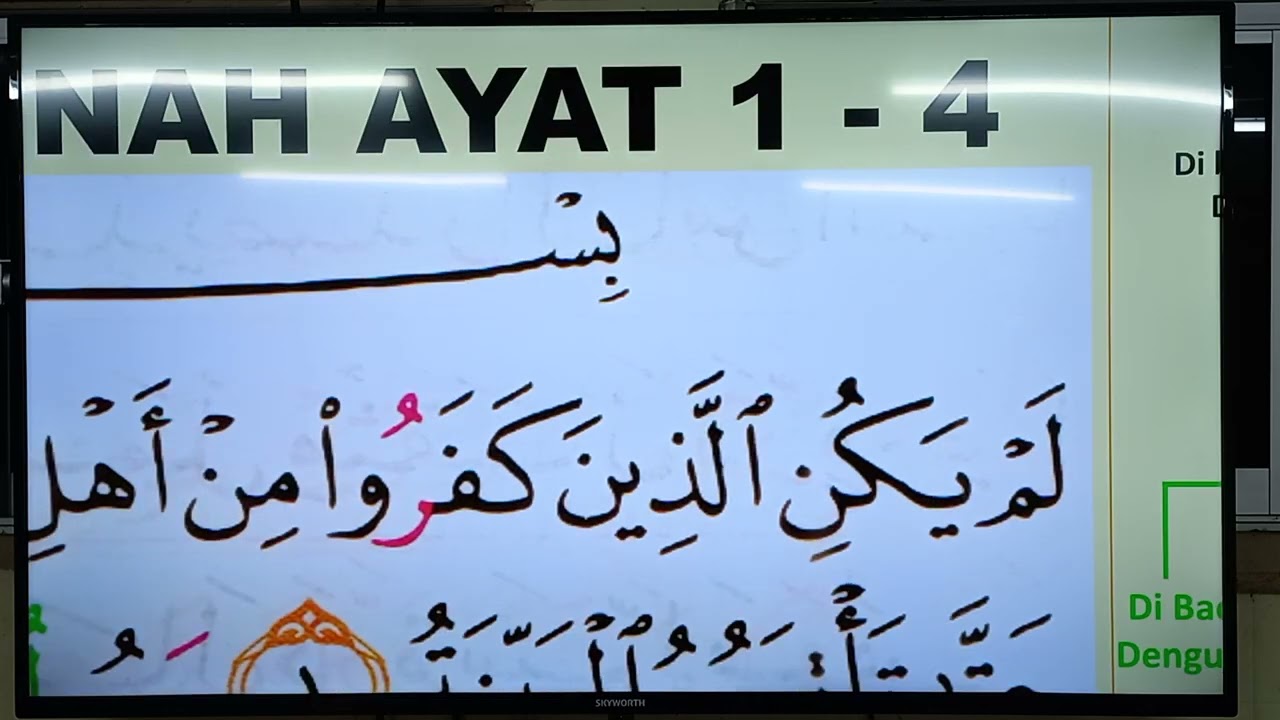 NAH AYAT 1 - 4
بِسْ
لَمْ يَكُنِ ٱلَّذِينَ كَفَرُوا۟ مِنْ أَهْلِ
Di
Di Bac
Dengu
SKYWORTH